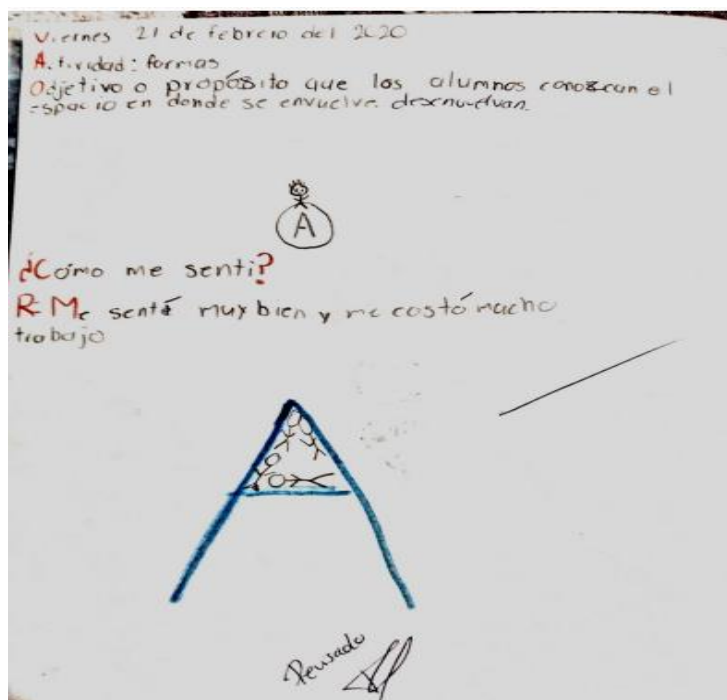 Viernes 21 de febrero del 2020
Actividad: formas
Odjetivo o propósito que los alumnos conozcan el
espacio en donde se envuelve. desenvuelvan.
A
¿Cómo me senti?
R= Me sentí muy bien y me costó mucho
trabajo
A